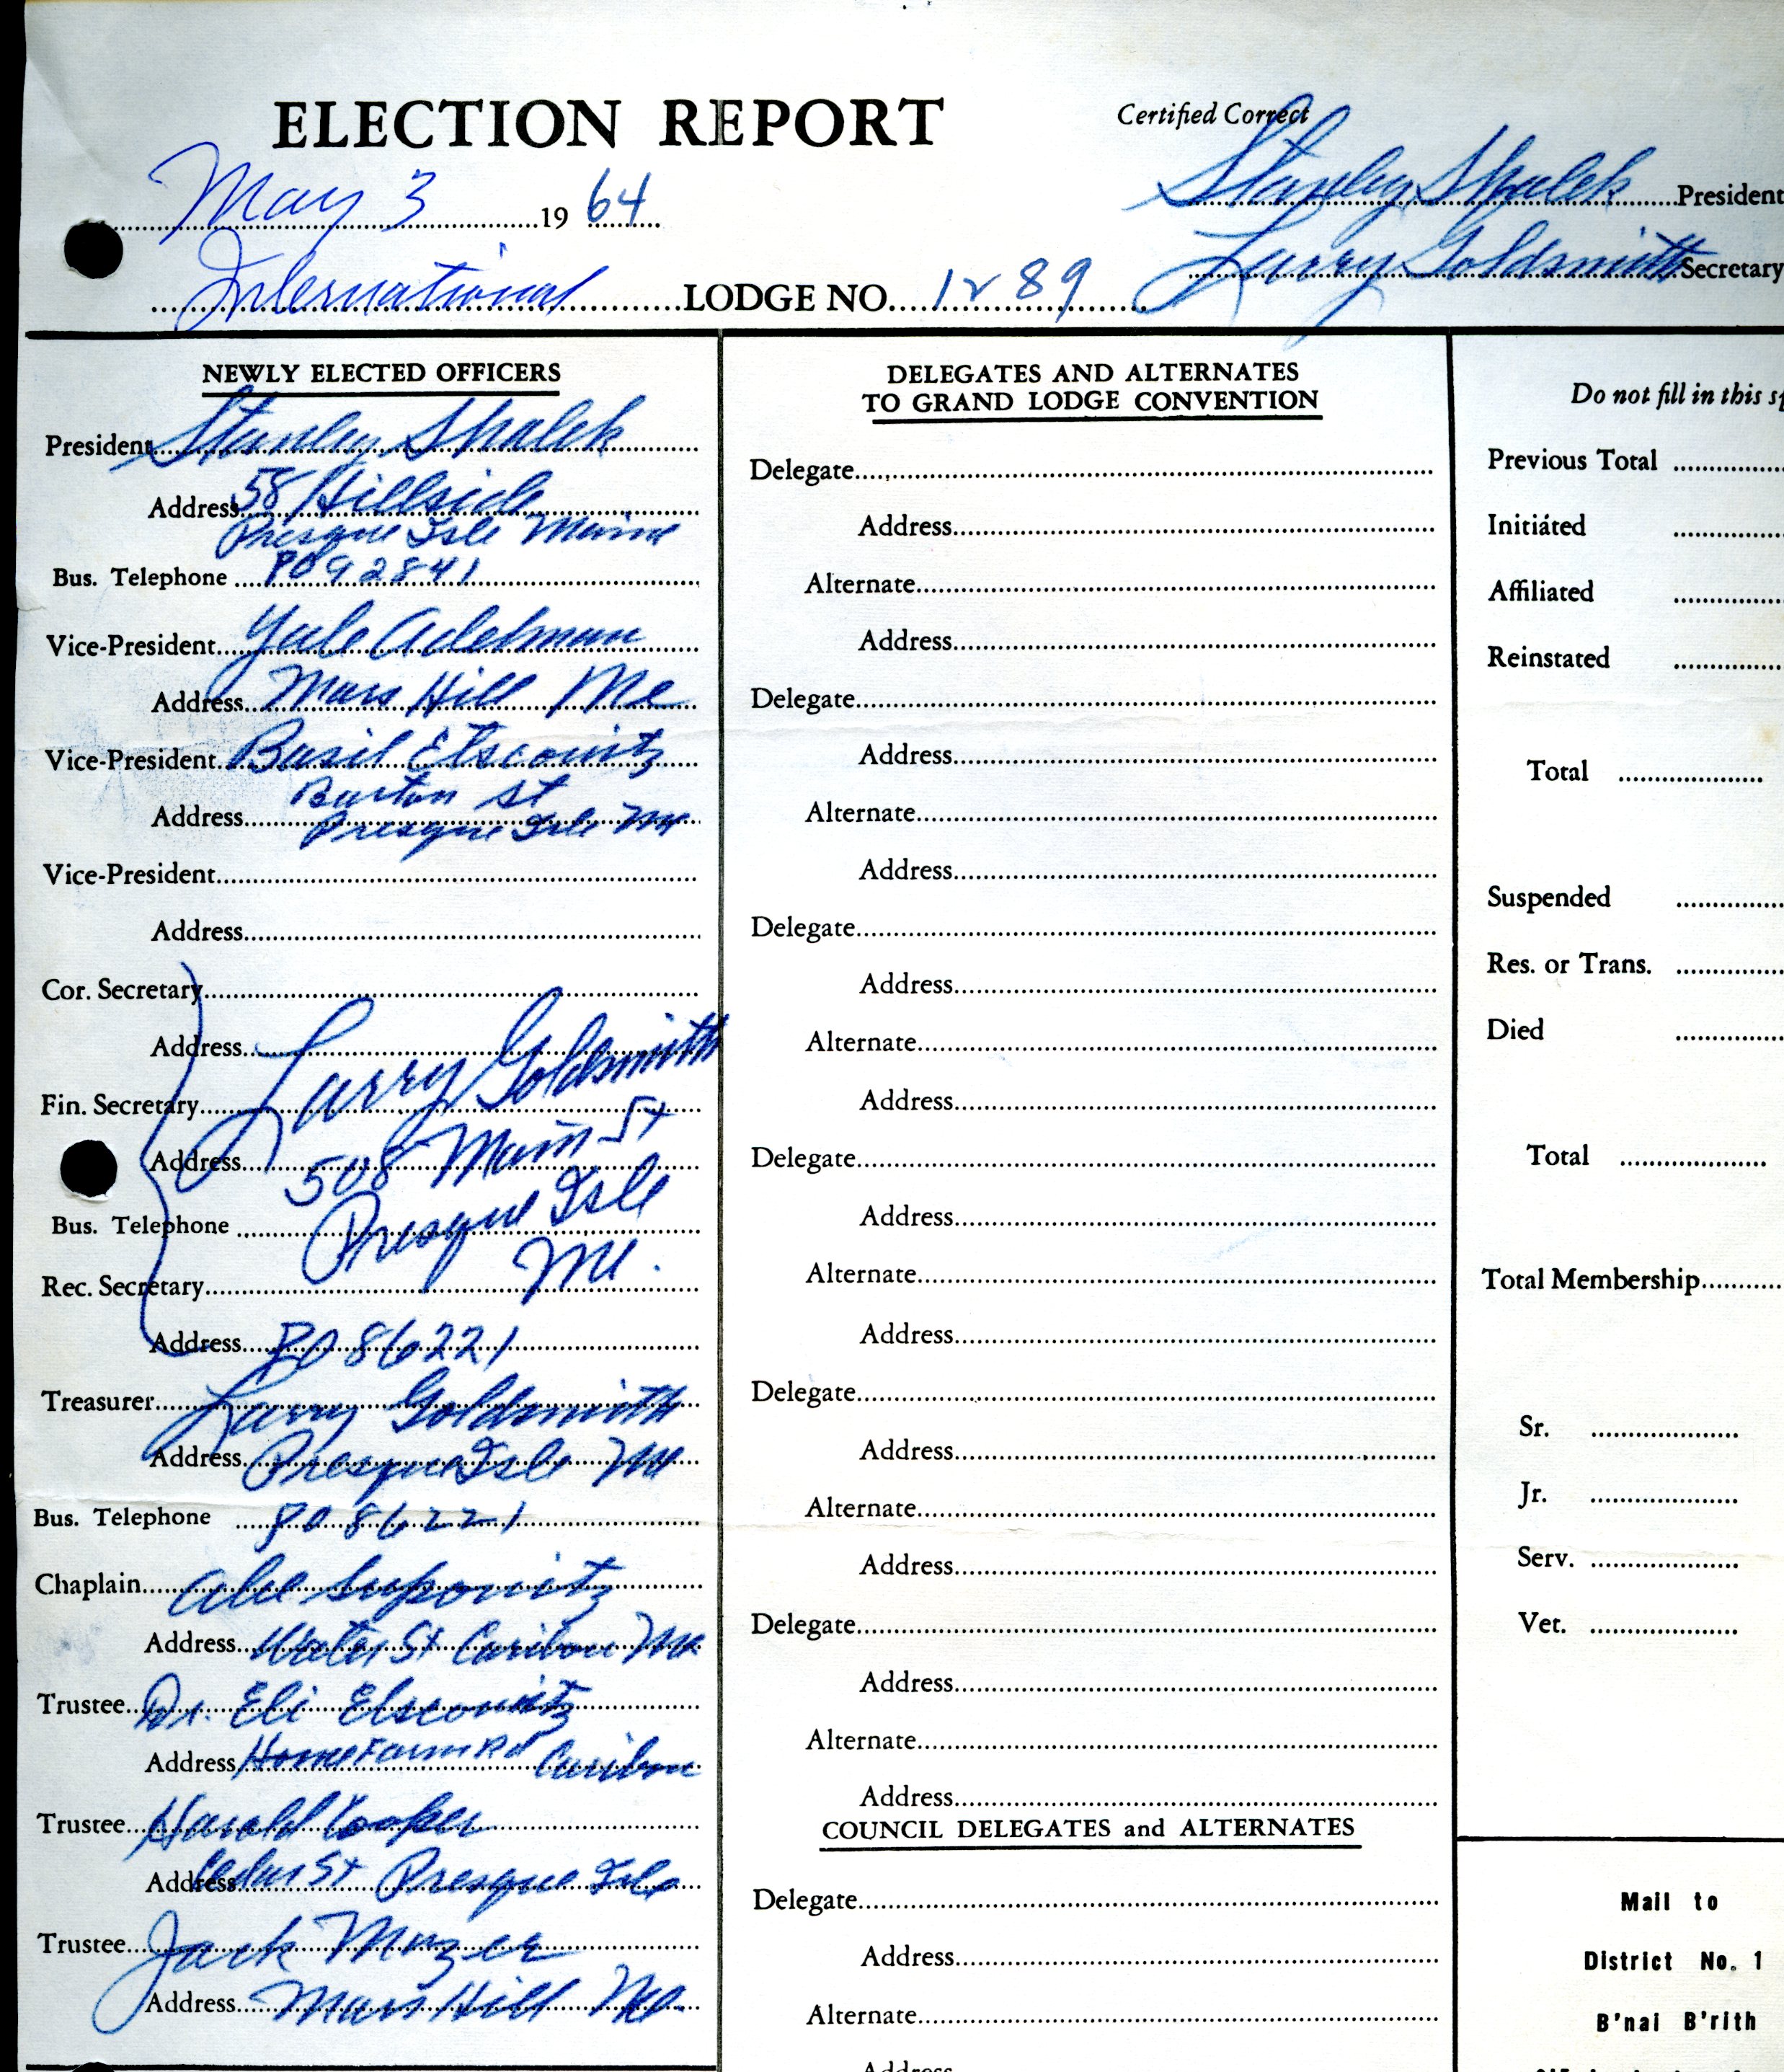 ELECTION REPORT
May 3 19 64
International LODGE NO. 1289
Certified Correct
Stanley Shalek President
Larry Goldsmith Secretary
NEWLY ELECTED OFFICERS
President Stanley Shalek
Address 58 Hillside
Presque Isle Maine
Bus. Telephone PO92841
Vice-President Yale Adelman
Address Mars Hill Me
Vice-President Basil Etscovitz
Burton St
Address Presque Isle Me
Vice-President
Address
Cor. Secretary
Address Larry Goldsmith
Fin. Secretary
Address 508 Main St
Bus. Telephone Presque Isle
Rec. Secretary Me.
Address PO 86221
Treasurer Larry Goldsmith
Address Presque Isle Me
Bus. Telephone PO 86221
Chaplain Abe Supovitz
Address Water St Caribou Me
Trustee Dr. Eli Etscovitz
Address Home Farm Rd Caribou
Trustee Harold Cooper
Address Cedar St Presque Isle
Trustee Jack Mazer
Address Mars Hill Me.
DELEGATES AND ALTERNATES
TO GRAND LODGE CONVENTION
Delegate
Address
Alternate
Address
Delegate
Address
Alternate
Address
Delegate
Address
Alternate
Address
Delegate
Address
Alternate
Address
Delegate
Address
Alternate
Address
Delegate
Address
Alternate
Address
COUNCIL DELEGATES and ALTERNATES
Delegate
Address
Alternate
Address
Do not fill in this
Previous Total
Initiated
Affiliated
Reinstated
Total
Suspended
Res. or Trans.
Died
Total
Total Membership
Sr.
Jr.
Serv.
Vet.
Mail to
District No. 1
B'nai B'rith